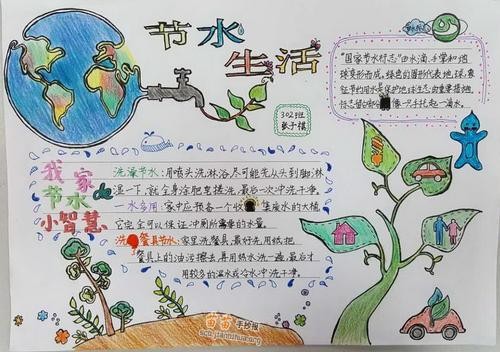 节水
生活
302班
张子祺
"国家节水标志"由水滴,手掌和地
球变形而成。绿色的圆形代表地球,象
征节约用水是保护地球生态的重要措施。
标志留白部分像一只手托起一滴水。
我家
节水de
小智慧
洗澡节水:用喷头洗淋浴,尽可能先从头到脚淋
湿一下,就全身涂肥皂搓洗,最后一次冲洗干净。
一水多用:家中应预备一个收集废水的大桶
它完全可以保证冲厕所需要的水量。
洗餐具节水:家里洗餐具,最好先用纸把
餐具上的油污擦去,再用热水洗一遍,最后才
用较多的温水或冷水冲洗干净。
苗苗手抄报
scb.jianninhua.org